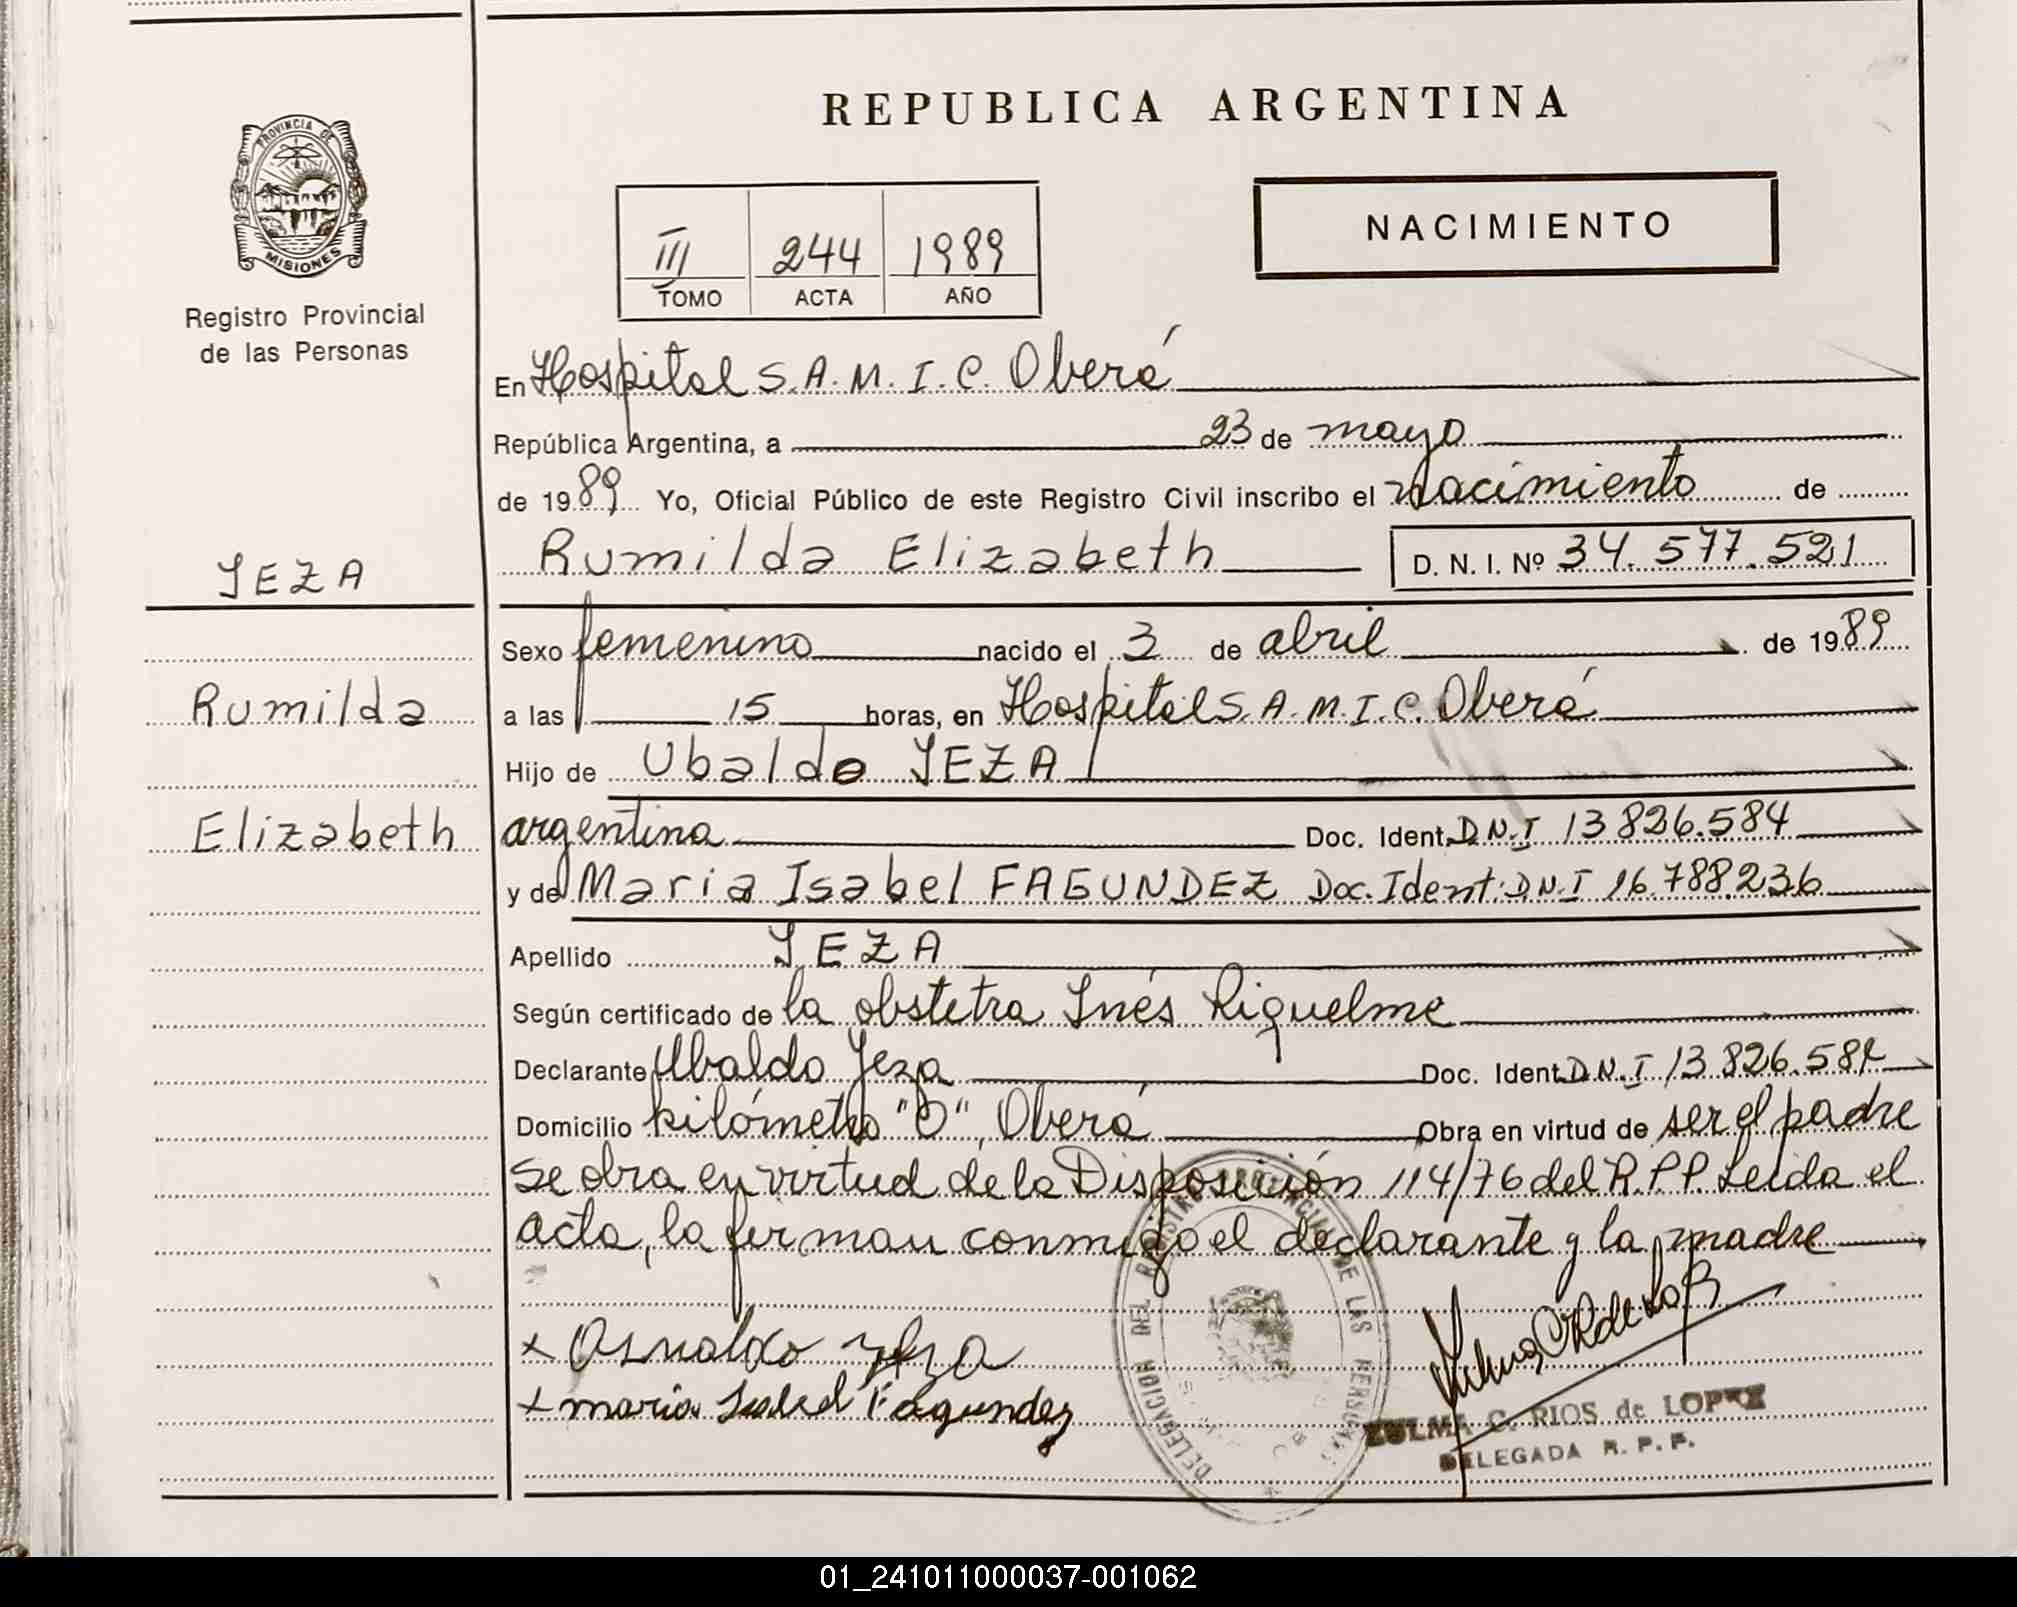 REPUBLICA ARGENTINA
PROVINCIA DE
MISIONES
Registro Provincial
de las Personas
III 244 1989
TOMO ACTA AÑO
NACIMIENTO
En Hospital S.A.M.I.C. Oberá
República Argentina, a 23 de mayo
de 1989 Yo, Oficial Público de este Registro Civil inscribo el nacimiento de
Rumilda Elizabeth D. N. I. Nº 34.577.521
YEZA
Sexo femenino nacido el 3 de abril de 1989
Rumilda
a las 15 horas, en Hospital S.A.M.I.C. Oberá
Hijo de Ubaldo YEZA
Elizabeth
argentina Doc. Ident. D.N.I 13 826.584
y de Maria Isabel FAGUNDEZ Doc. Ident: D.N.I 16.788.236
Apellido YEZA
Según certificado de la obstetra Inés Riquelme
Declarante Ubaldo Yeza Doc. Ident. D.N.I 13 826.584
Domicilio kilómetro "0", Oberá Obra en virtud de ser el padre
se obra en virtud de la Disposición 114/76 del R.P.P. Leida el
acta, la firman conmigo el declarante y la madre
x Osvaldo Yeza
x maria Isabel Fagundez
DELEGACION DEL REGISTRO PROVINCIAL DE LAS PERSONAS
ZULMA C. RIOS de LOPEZ
DELEGADA R. P. P.
01_241011000037-001062